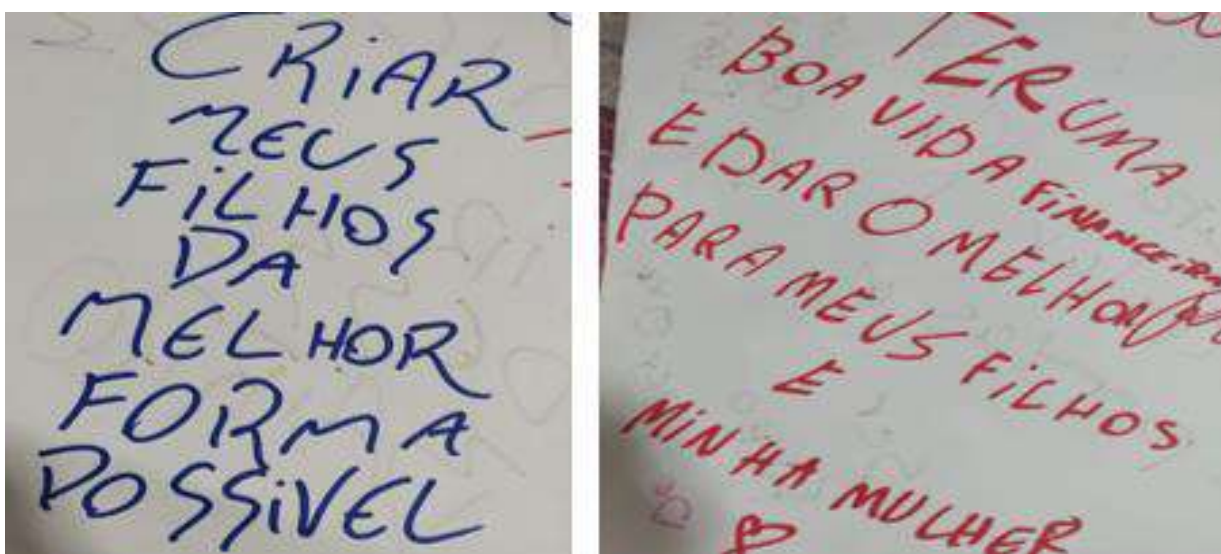 CRIAR
MEUS
FILHOS
DA
MELHOR
FORMA
POSSIVEL
TER UMA
BOA VIDA FINANCEIRA
E DAR O MELHOR
PARA MEUS FILHOS
E
MINHA MULHER